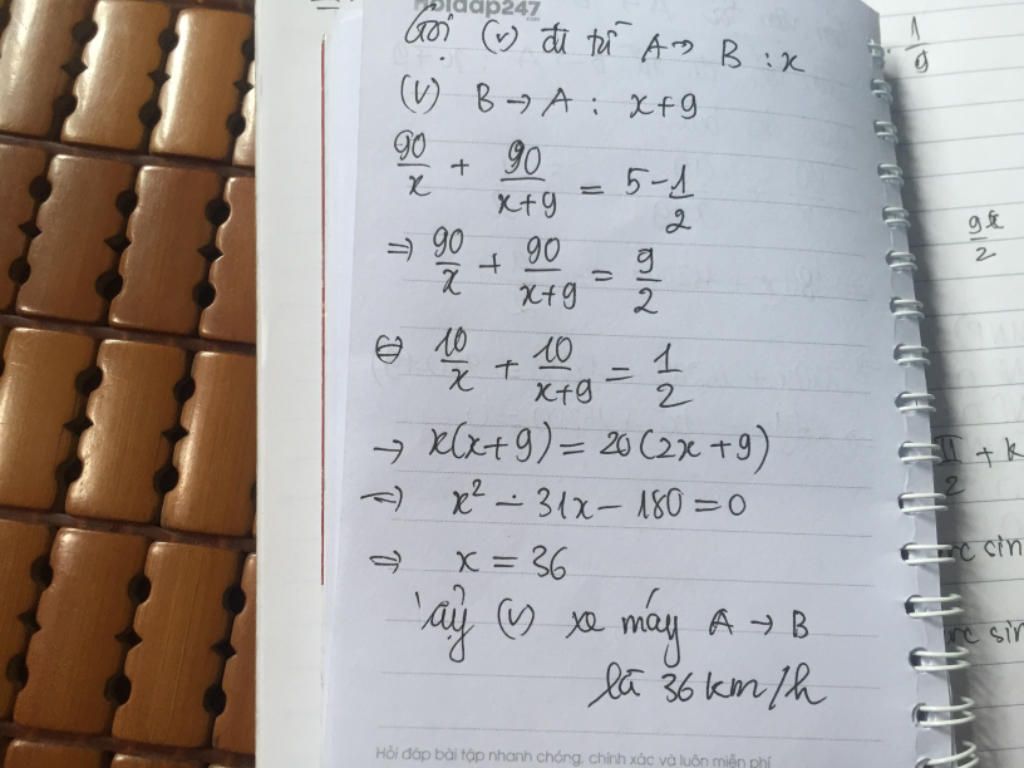 hoidap247
.com
Gọi (v) đi từ A → B : x
(V) B → A : x+9
90/x + 90/(x+9) = 5 - 1/2
⇒ 90/x + 90/(x+9) = 9/2
⇔ 10/x + 10/(x+9) = 1/2
→ x(x+9) = 20(2x+9)
⇒ x² - 31x - 180 = 0
⇒ x = 36
ậy (v) xe máy A → B
là 36 km/h
Hỏi đáp bài tập nhanh chóng, chính xác và luôn miễn phí
1/9
π/2 + k
rc sin